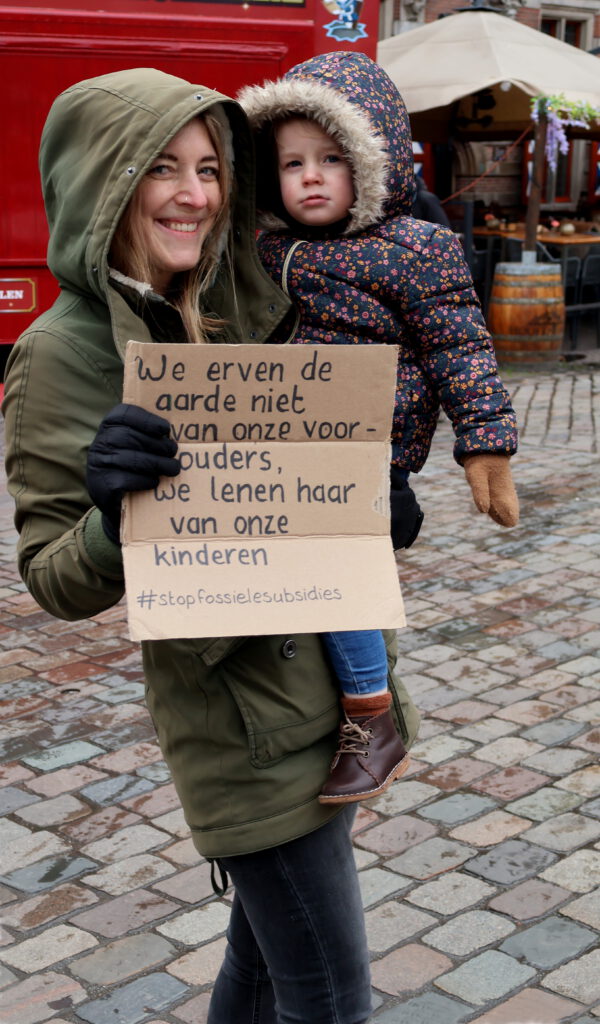 We erven de
aarde niet
van onze voor-
ouders,
we lenen haar
van onze
kinderen
#stopfossielesubsidies